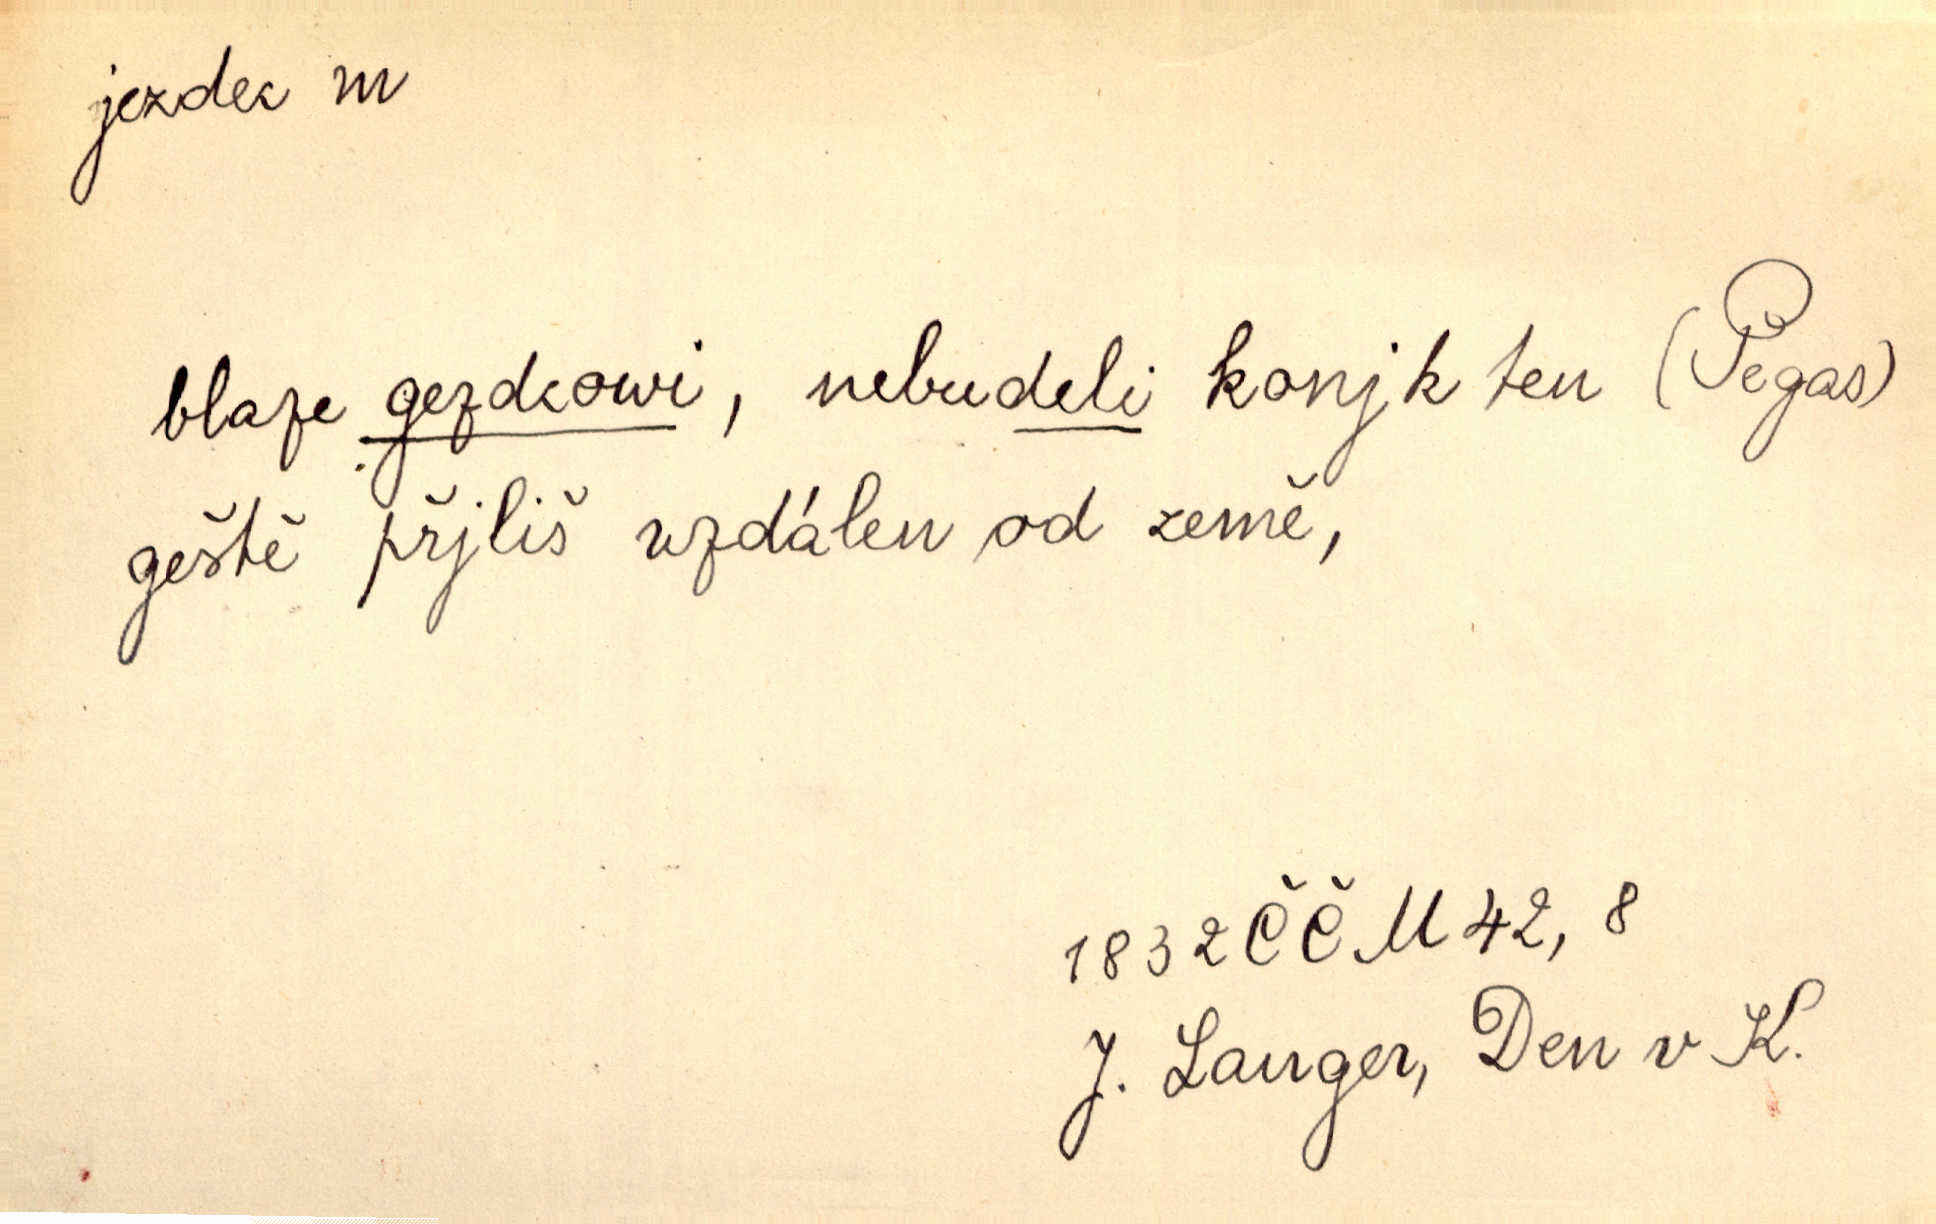 jezdec m
blaze gezdcowi, nebudeli konjk ten (Pegas)
geště přjliš wzdálen od země,
1832 ČČM 42, 8
J. Langer, Den v K.